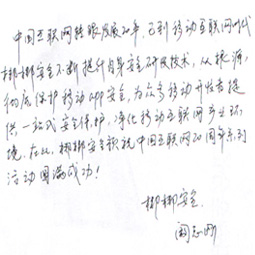 中国互联网转眼发展20年，已到移动互联网时代
梆梆安全不断提升自身安全研发技术，从根源，
彻底保护移动app安全，为众多移动开发者提
供一站式安全保护，净化移动互联网产业环
境。在此，梆梆安全预祝中国互联网20周年系列
活动圆满成功！
梆梆安全
阚志刚